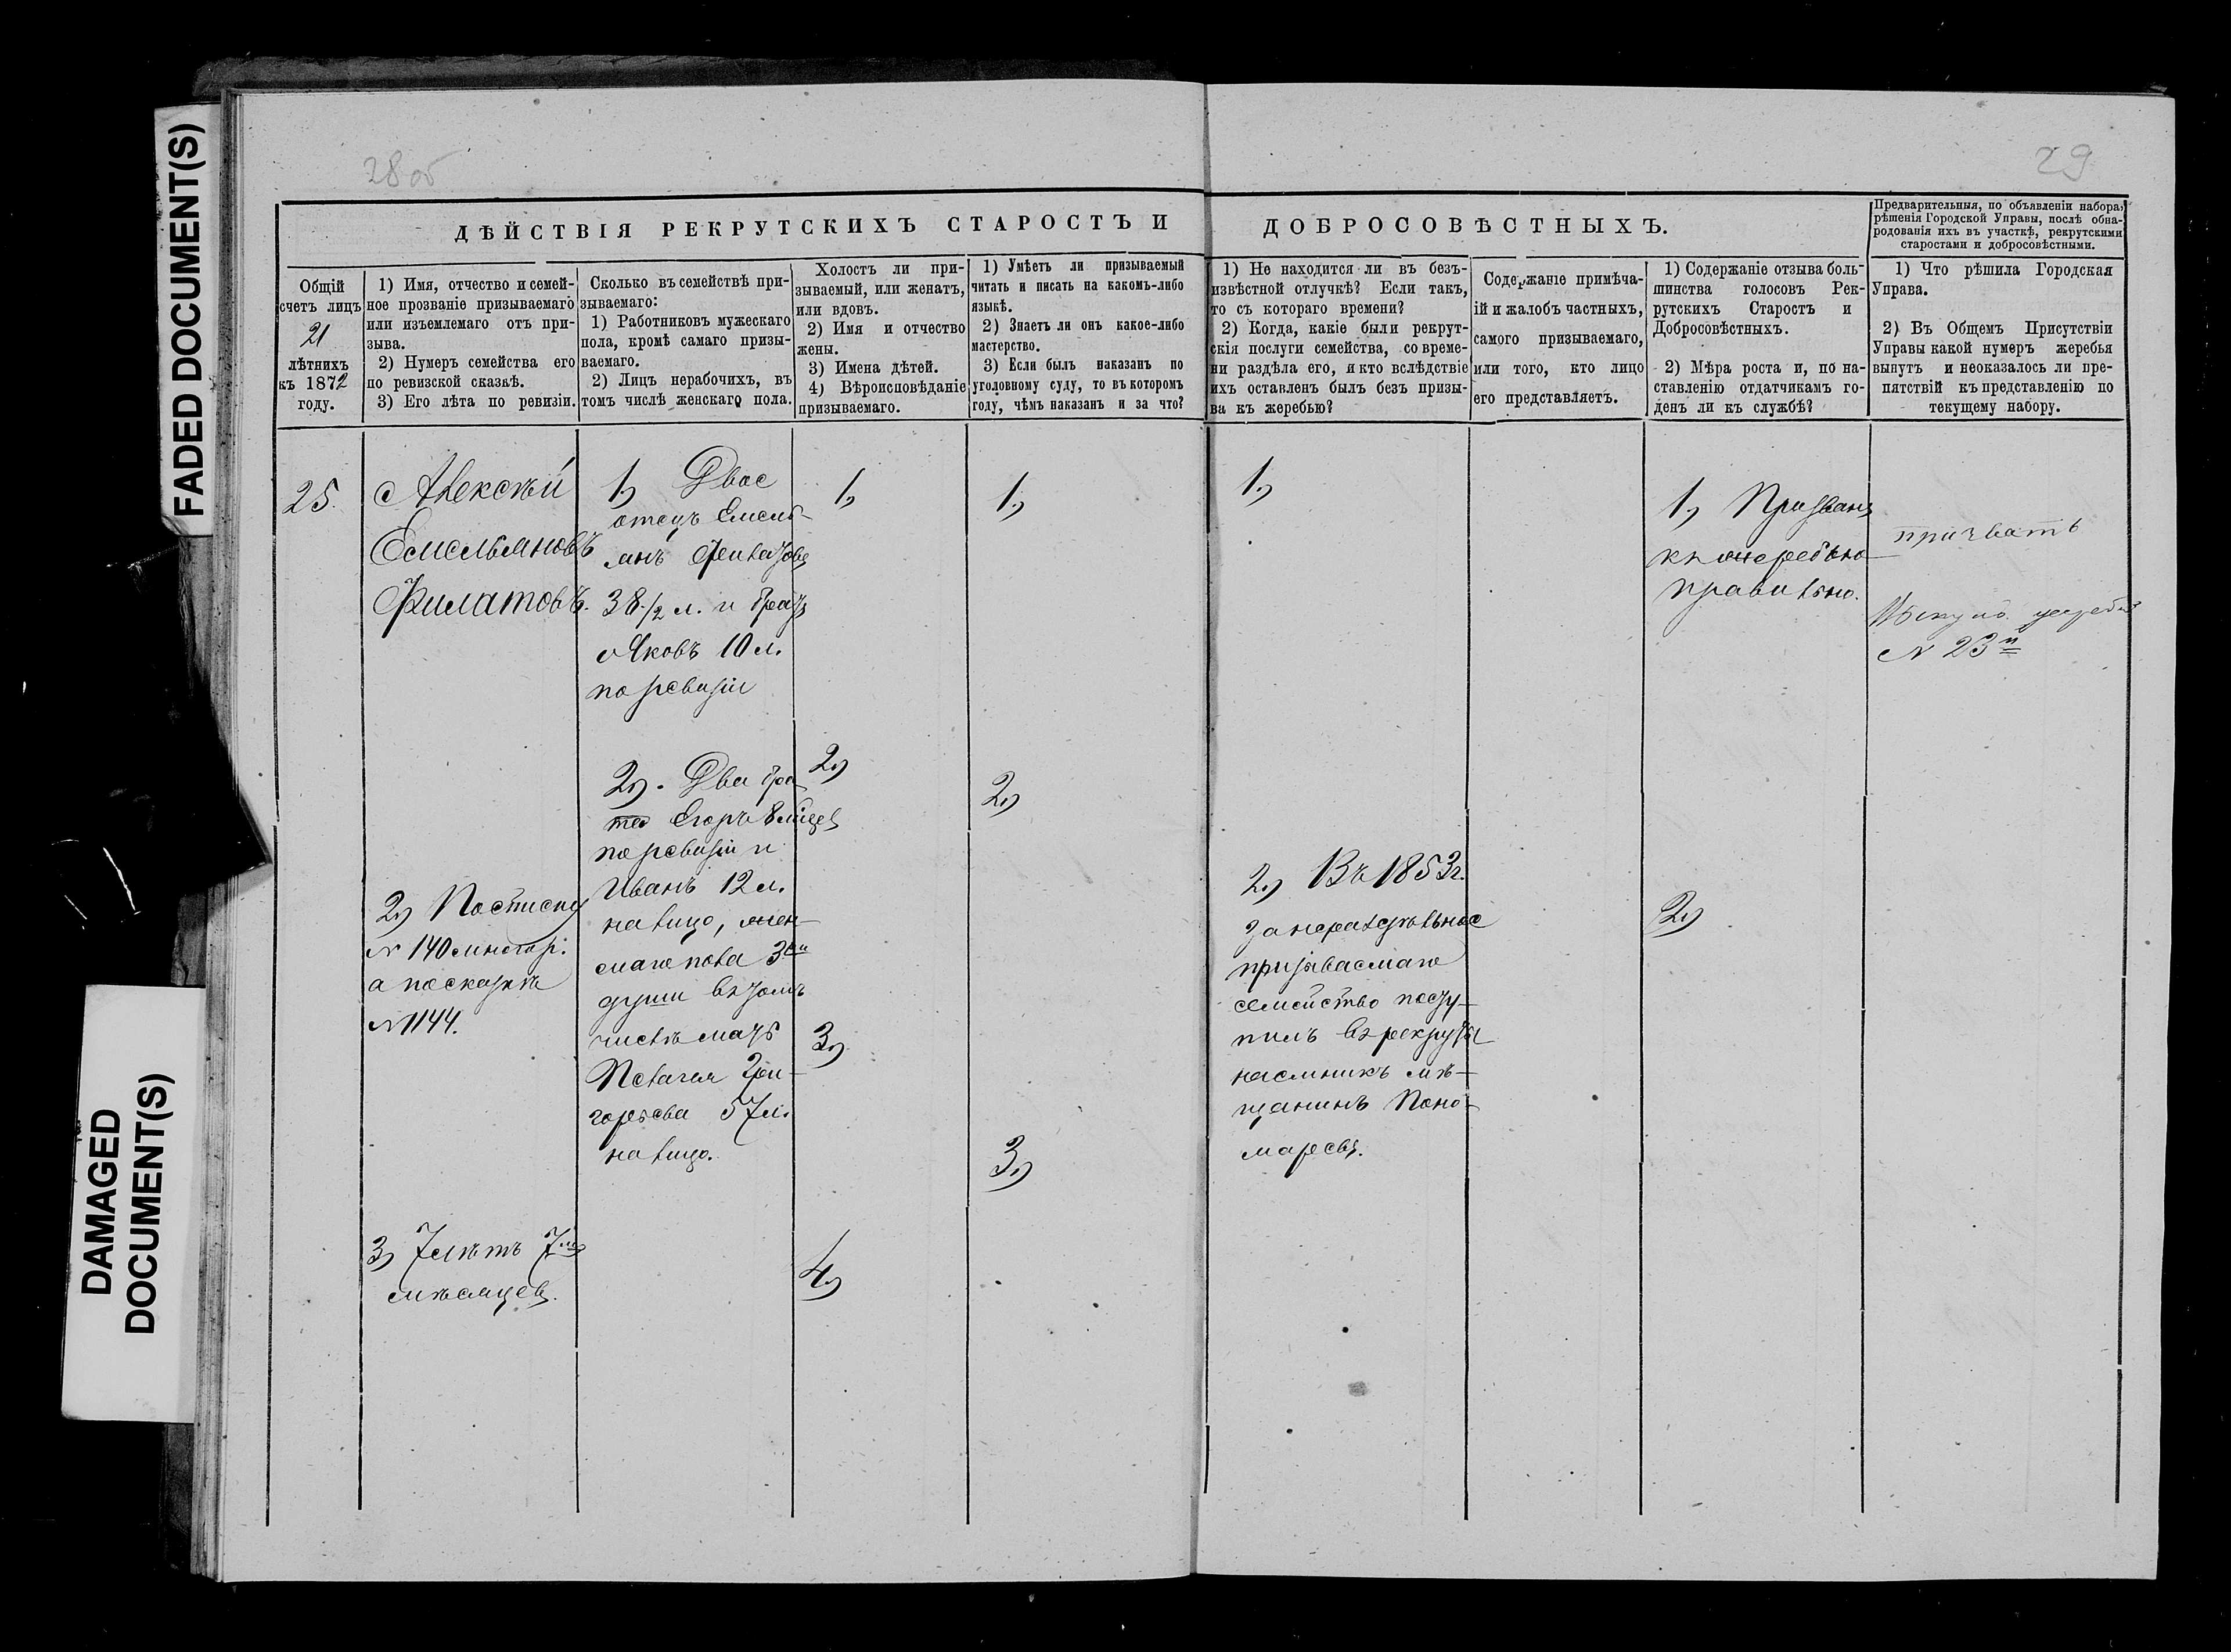 FADED DOCUMENT(S)
DAMAGED
DOCUMENT(S)
28 об
29
ДѢЙСТВІЯ РЕКРУТСКИХЪ СТАРОСТЪ И ДОБРОСОВѢСТНЫХЪ.
Предварительныя, по объявленіи набора,
рѣшенія Городской Управы, послѣ обна-
родованія ихъ въ участкѣ, рекрутскими
старостами и добросовѣстными.
Общій
счетъ лицъ
21
лѣтнихъ
къ 1872
году.
1) Имя, отчество и семей-
ное прозваніе призываемаго
или изъемлемаго отъ при-
зыва.
2) Нумеръ семейства его
по ревизской сказкѣ.
3) Его лѣта по ревизіи.
Сколько въ семействѣ при-
зываемаго:
1) Работниковъ мужескаго
пола, кромѣ самаго призы-
ваемаго.
2) Лицъ нерабочихъ, въ
томъ числѣ женскаго пола.
Холостъ ли при-
зываемый, или женатъ,
или вдовъ.
2) Имя и отчество
жены.
3) Имена дѣтей.
4) Вѣроисповѣданіе
призываемаго.
1) Умѣетъ ли призываемый
читать и писать на какомъ-либо
языкѣ.
2) Знаетъ ли онъ какое-либо
мастерство.
3) Если былъ наказанъ по
уголовному суду, то въ которомъ
году, чѣмъ наказанъ и за что?
1) Не находится ли въ безъ-
извѣстной отлучкѣ? Если такъ,
то съ котораго времени?
2) Когда, какіе были рекрут-
скія послуги семейства, со време-
ни раздѣла его, и кто вслѣдствіе
ихъ оставленъ былъ безъ призы-
ва къ жеребью?
Содержаніе примѣча-
ій и жалобъ частныхъ,
самого призываемаго,
или того, кто лицо
его представляетъ.
1) Содержаніе отзыва боль-
шинства голосовъ Рек-
рутскихъ Старостъ и
Добросовѣстныхъ.
2) Мѣра роста и, по на-
ставленію отдатчикамъ го-
денъ ли къ службѣ?
1) Что рѣшила Городская
Управа.
2) Въ Общемъ Присутствіи
Управы какой нумеръ жеребья
вынутъ и неоказалось ли пре-
пятствій къ представленію по
текущему набору.
25.
Алексѣй
Емельяновъ
Филатовъ.
2) По списку
№ 140
а по сказкѣ
№ 1144.
3) 7 лѣтъ 7
мѣсяцевъ.
1) Двое
отецъ Емель-
янъ
38 1/2 л. и братъ
Яковъ 10 л.
по ревизіи
2). Два бра
та Егоръ 8 мѣсцев
по ревизіи и
Иванъ 12 л.
налицо, жен-
скаго пола 3
души въ томъ
числѣ мать
Пелагея Гри-
горьева 57 л.
налицо.
1)
2)
3)
4)
1)
2)
3)
1)
2) Въ 1853 г.
за нераздѣльное
призываемаго
семейство посту-
пилъ въ рекруты
наемникъ мѣ-
щанинъ Поно-
маревъ.
1) Призванъ
къ жеребью
правильно.
2)
призвать
жребій
№ 23